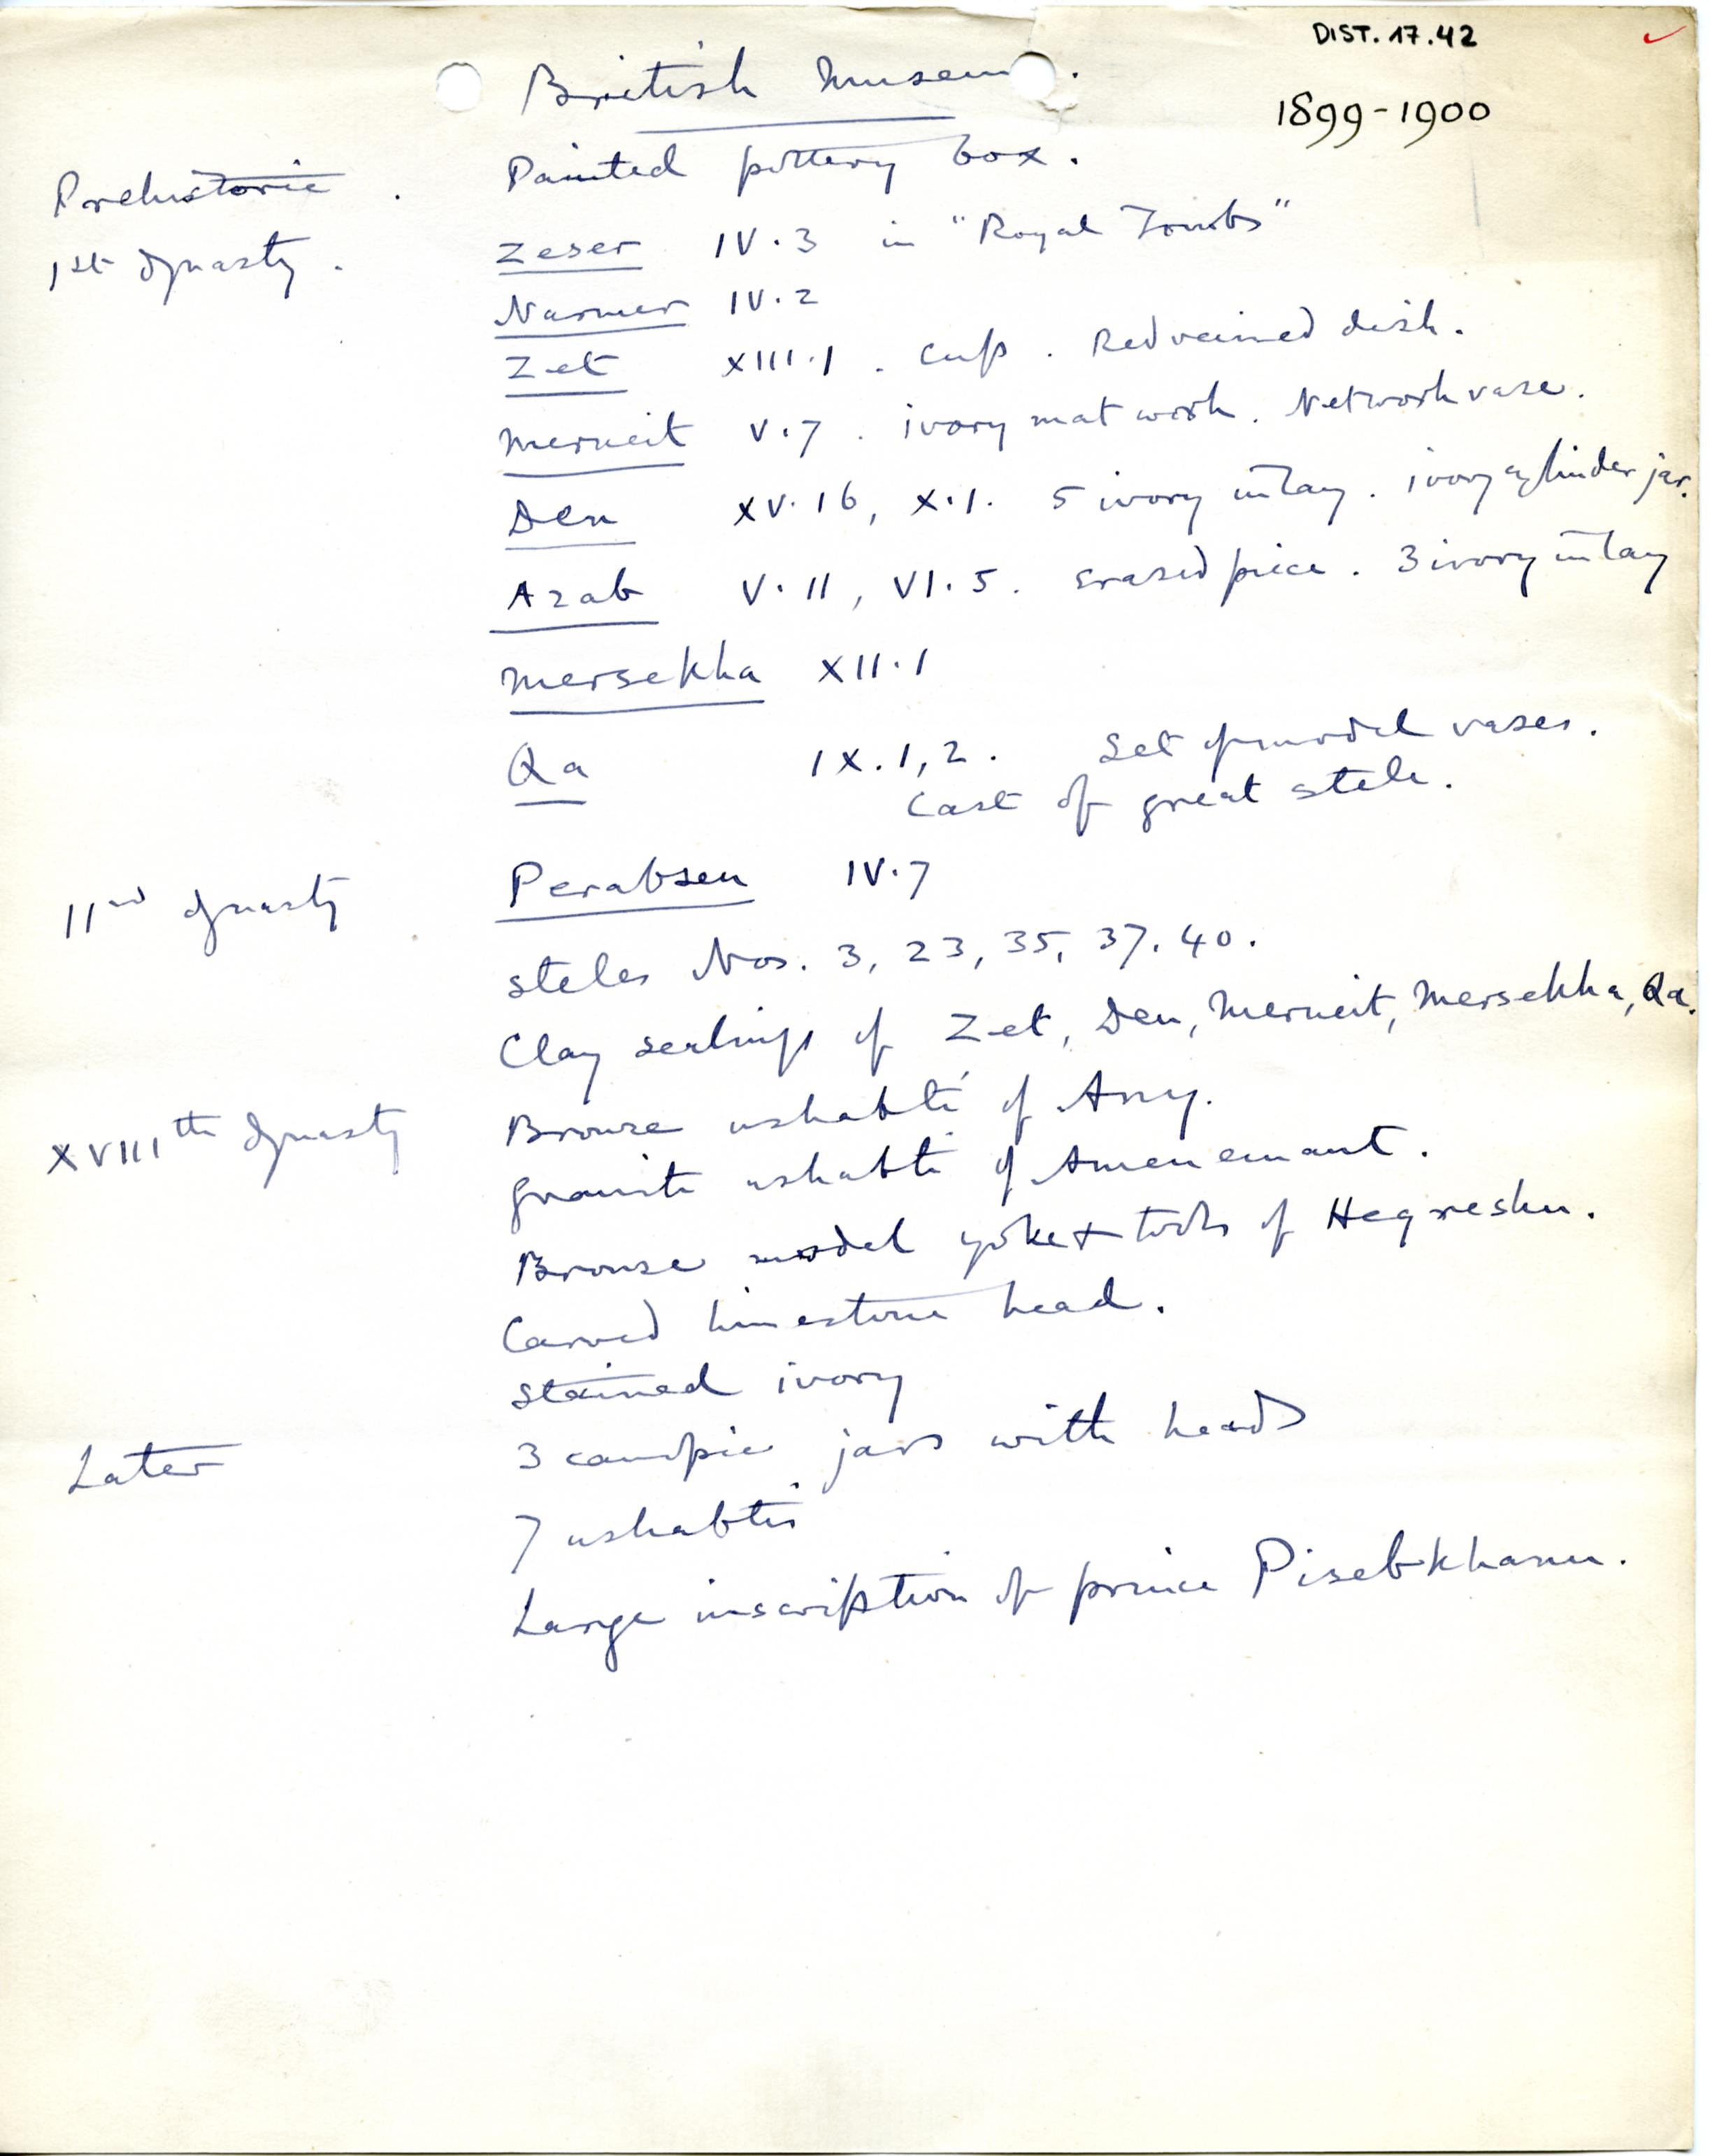 DIST. 17.42
British Museum.
1899-1900
Prehistoric . Painted pottery box.
1st dynasty. Zeser IV.3 in "Royal Tombs"
Narmer IV.2
Zet XIII.1. Cup. Redveined dish.
Merneit V.7. ivory mat work. Network vase.
Den XV.16, X.1. 5 ivory inlay. ivory cylinder jar.
Azab V.11, VI.5. Erased piece. 3 ivory inlay
Mersekha XII.1
Qa IX.1,2. Set of model vases.
Cast of great stele.
IInd dynasty Perabsen IV.7
Steles Nos. 3, 23, 35, 37. 40.
Clay sealings of Zet, Den, Merneit, Mersekha, Qa.
XVIIIth dynasty Bronze ushabti of Any.
Granite ushabti of Amenemant.
Bronze model yoke + tools of Heqreshu.
Carved limestone head.
Stained ivory
Later 3 canopic jars with heads
7 ushabtis
Large inscription of prince Pisebkhanu.